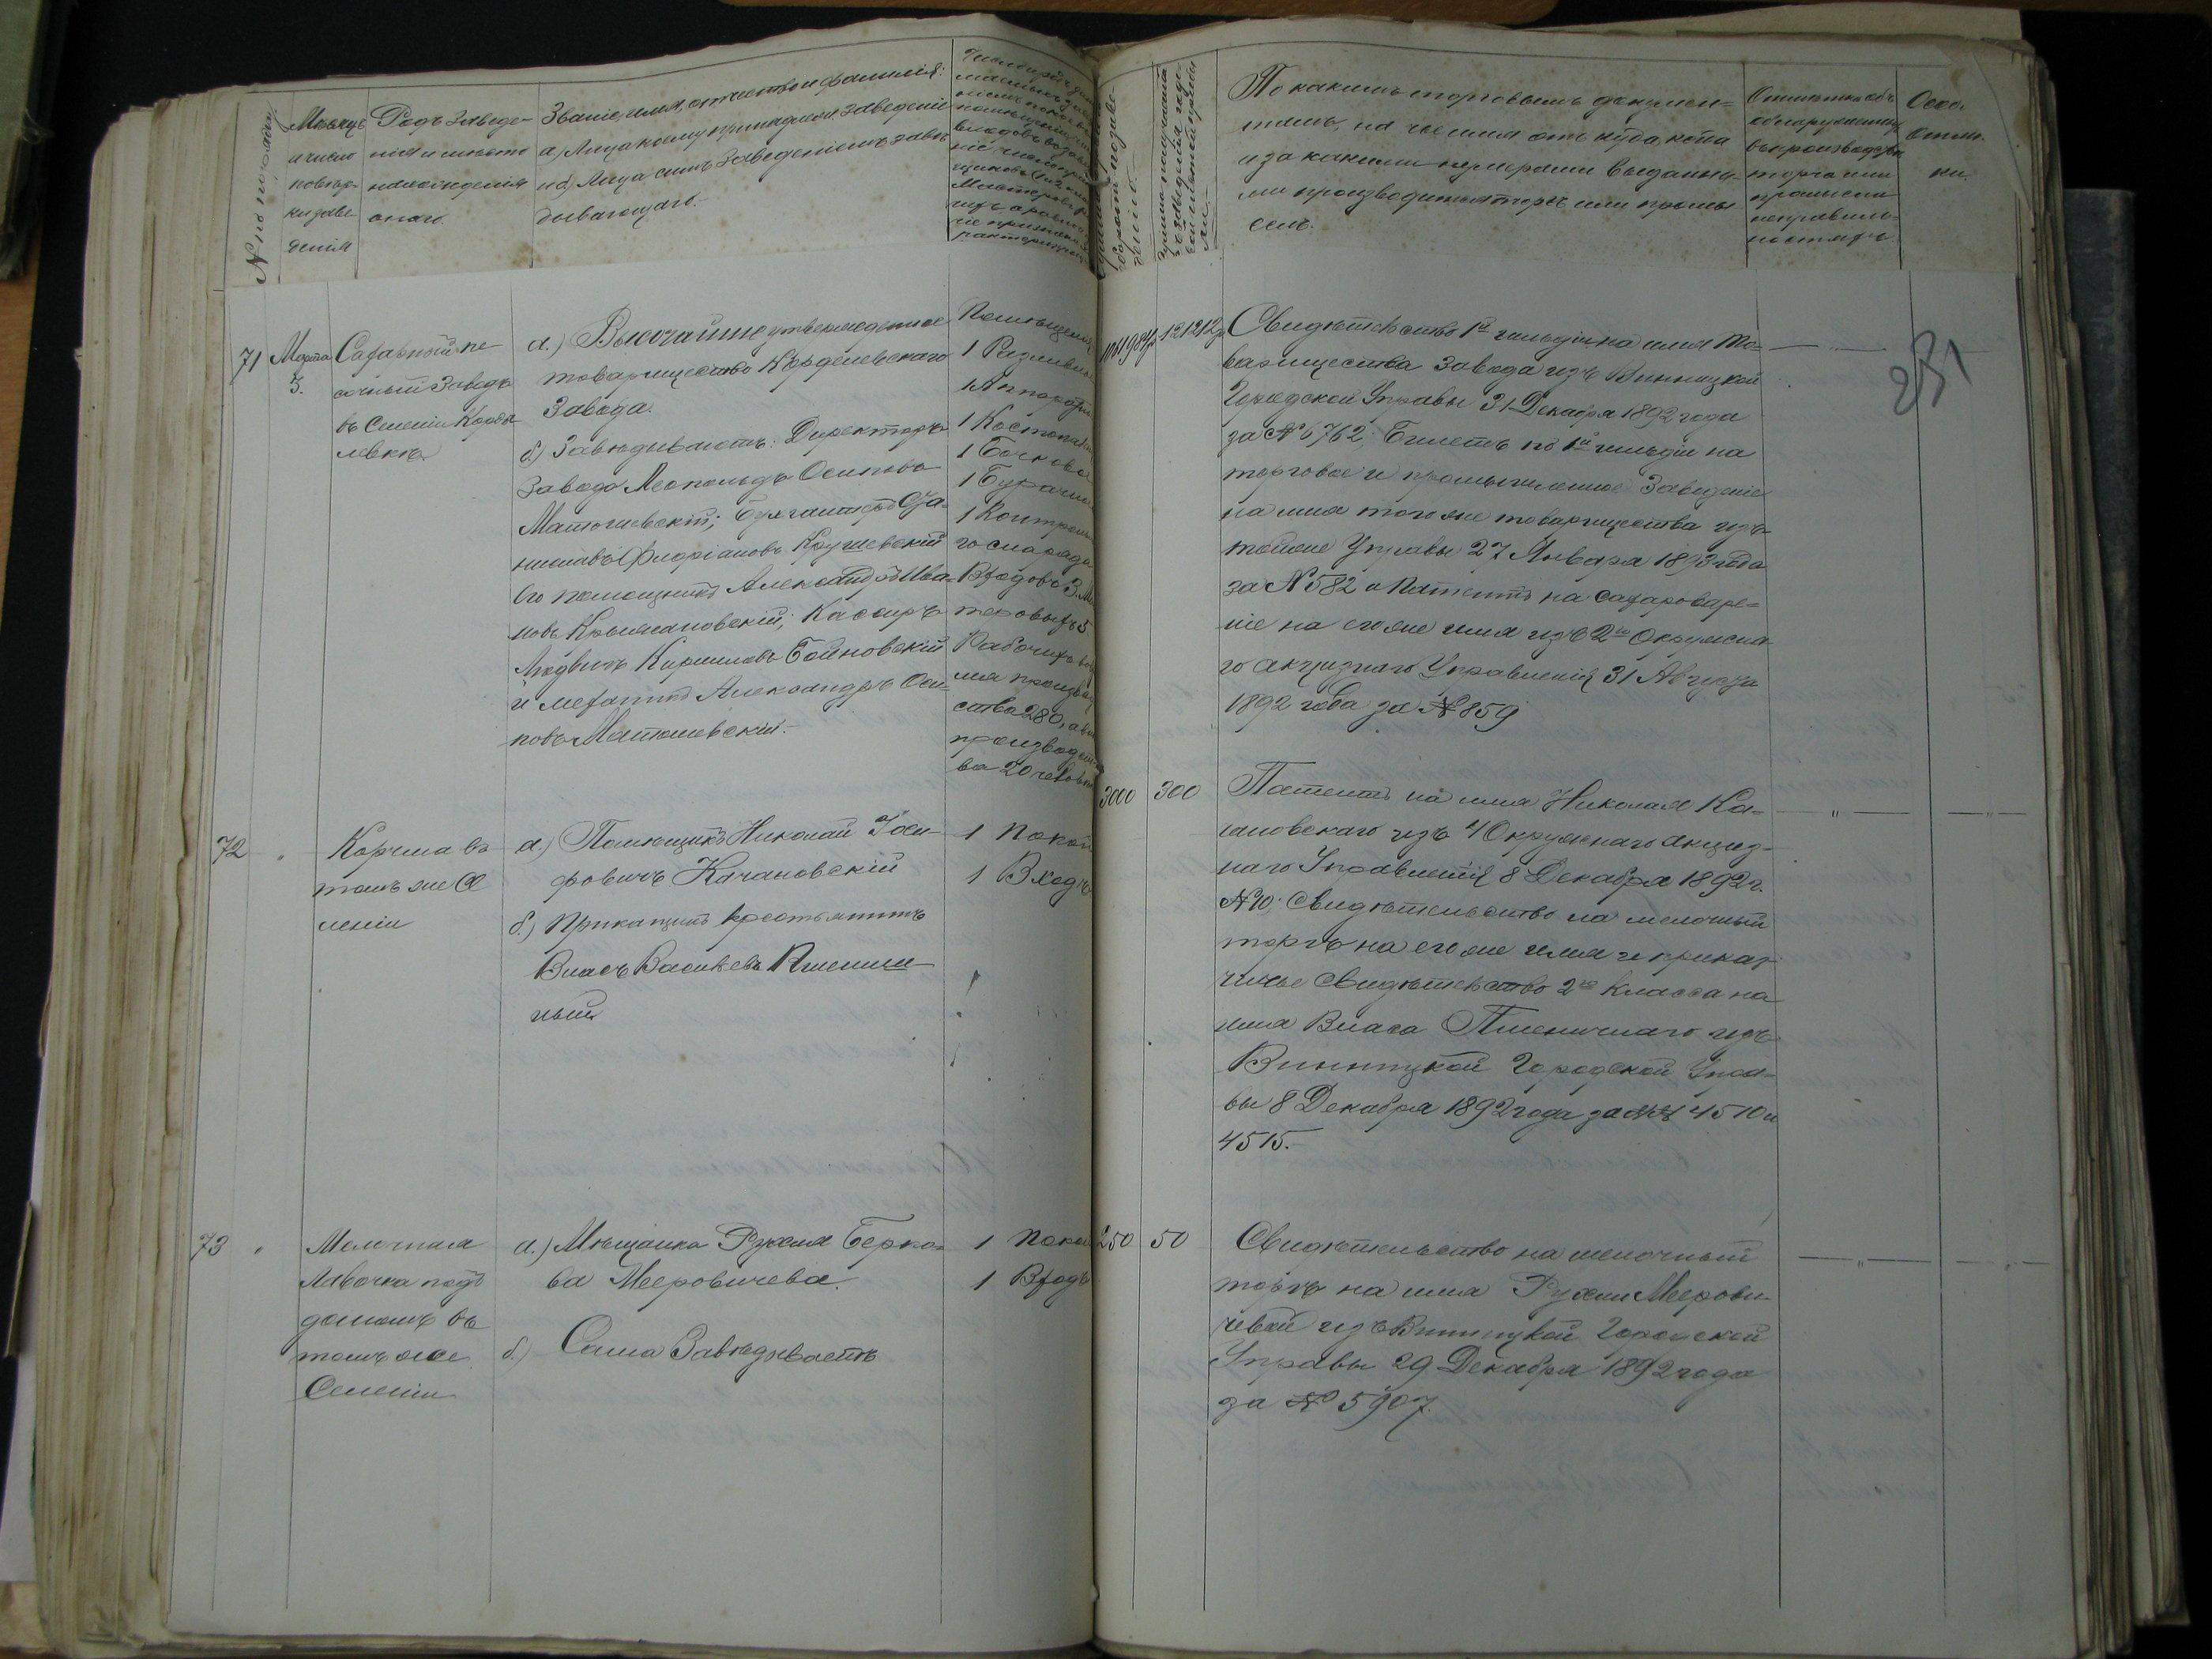 № по порядку
Месяцъ
и число
повѣр-
ки заве-
денія
Родъ заведе-
нія и мѣсто
нахожденія
онаго.
Званіе, имя, отчество и фамилія:
а) Лица кому принадлежи заведеніе
и б) Лица симъ заведеніемъ завѣ-
дывающаго.
По какимъ торговымъ докумен-
тамъ, на чье имя отъ куда, когда
и за какими нумерами выданны-
ми производится торгъ или промы
селъ.
Отмѣтка объ
обнаруженныхъ
въ производствѣ
торга или
промысла
неправиль-
ностяхъ
Особ.
Отмѣт.
ки.
71
Марта
3.
Сахарный пе
сочный Заводъ
въ Селеніи Корде
левкѣ
а.) Высочайше утвержденное
товарищество Корделевскаго
Завода.
б.) Завѣдываетъ: Директоръ
Завода Леопольдъ Осиповъ
Матюшевскій; Бухгалтеръ Ста-
ниславъ Флоріановъ Крушевскій
Его помощникъ Александръ Ива-
новъ Крыжановскій; Кассиръ
Людвигъ Кириловъ Бойновскій
и механикъ Александръ Оси-
повъ Матюшевскій.
Помѣщеній
1 Разливная
1 Аппарат
1 Костопал
1 Бочков
1 Бурачн
1 Контроль
го снаряда
Входовъ 3. Ма
теровыхъ 5
Рабочихъ во вре
мя производ
ства 280, а в
производст
ва 20 челов
121212 р
Свидѣтельство 1й гильдіи на имя То-
варищества Завода изъ Винницкой
Городской Управы 31 Декабря 1892 года
за № 6762; Билетъ по 1й гильдіи на
торговое и промышленное Заведеніе
на имя того же товарищества изъ
той же Управы 27 Января 1893 года
за № 582 и Патентъ на сахароваре-
ніе на его же имя изъ 2го Окружна
го акцизнаго Управленія 31 Августа
1892 года за № 859
231
72
"
Корчма въ
томъ же Се
леніи
а.) Помѣщикъ Николай Іоси-
фовичъ Качановскій
б.) Прикащикъ крестьянинъ
Власъ Васильевъ Пшенич-
ный
1 Покой
1 Входъ
3000
300
Патентъ на имя Николая Ка-
чановскаго изъ 4 Окружнаго акциз-
наго Управленія 8 Декабря 1892 г.
№ 70; Свидѣтельство на мелочный
торгъ на его же имя и приказ
чичье Свидѣтельство 2го класса на
имя Власа Пшеничнаго изъ
Винницкой Городской Упра-
вы 8 Декабря 1892 года за №№ 4510 и
4515.
73
"
Мелочная
Лавочка подъ
домомъ въ
томъ же
Селеніи
а.) Мѣщанка Рухля Берко-
ва Мееровичева.
б.) Сама Завѣдываетъ
1 Покой
1 Входъ
250
50
Свидѣтельство на мелочный
торгъ на имя Рухли Мееров-
чевой изъ Винницкой Городской
Управы 29 Декабря 1892 года
за № 5907.